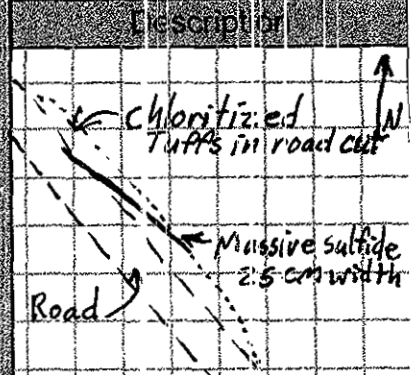 Description
N
Chloritized
Tuffs in road cut
Massive sulfide
2.5 cm width
Road